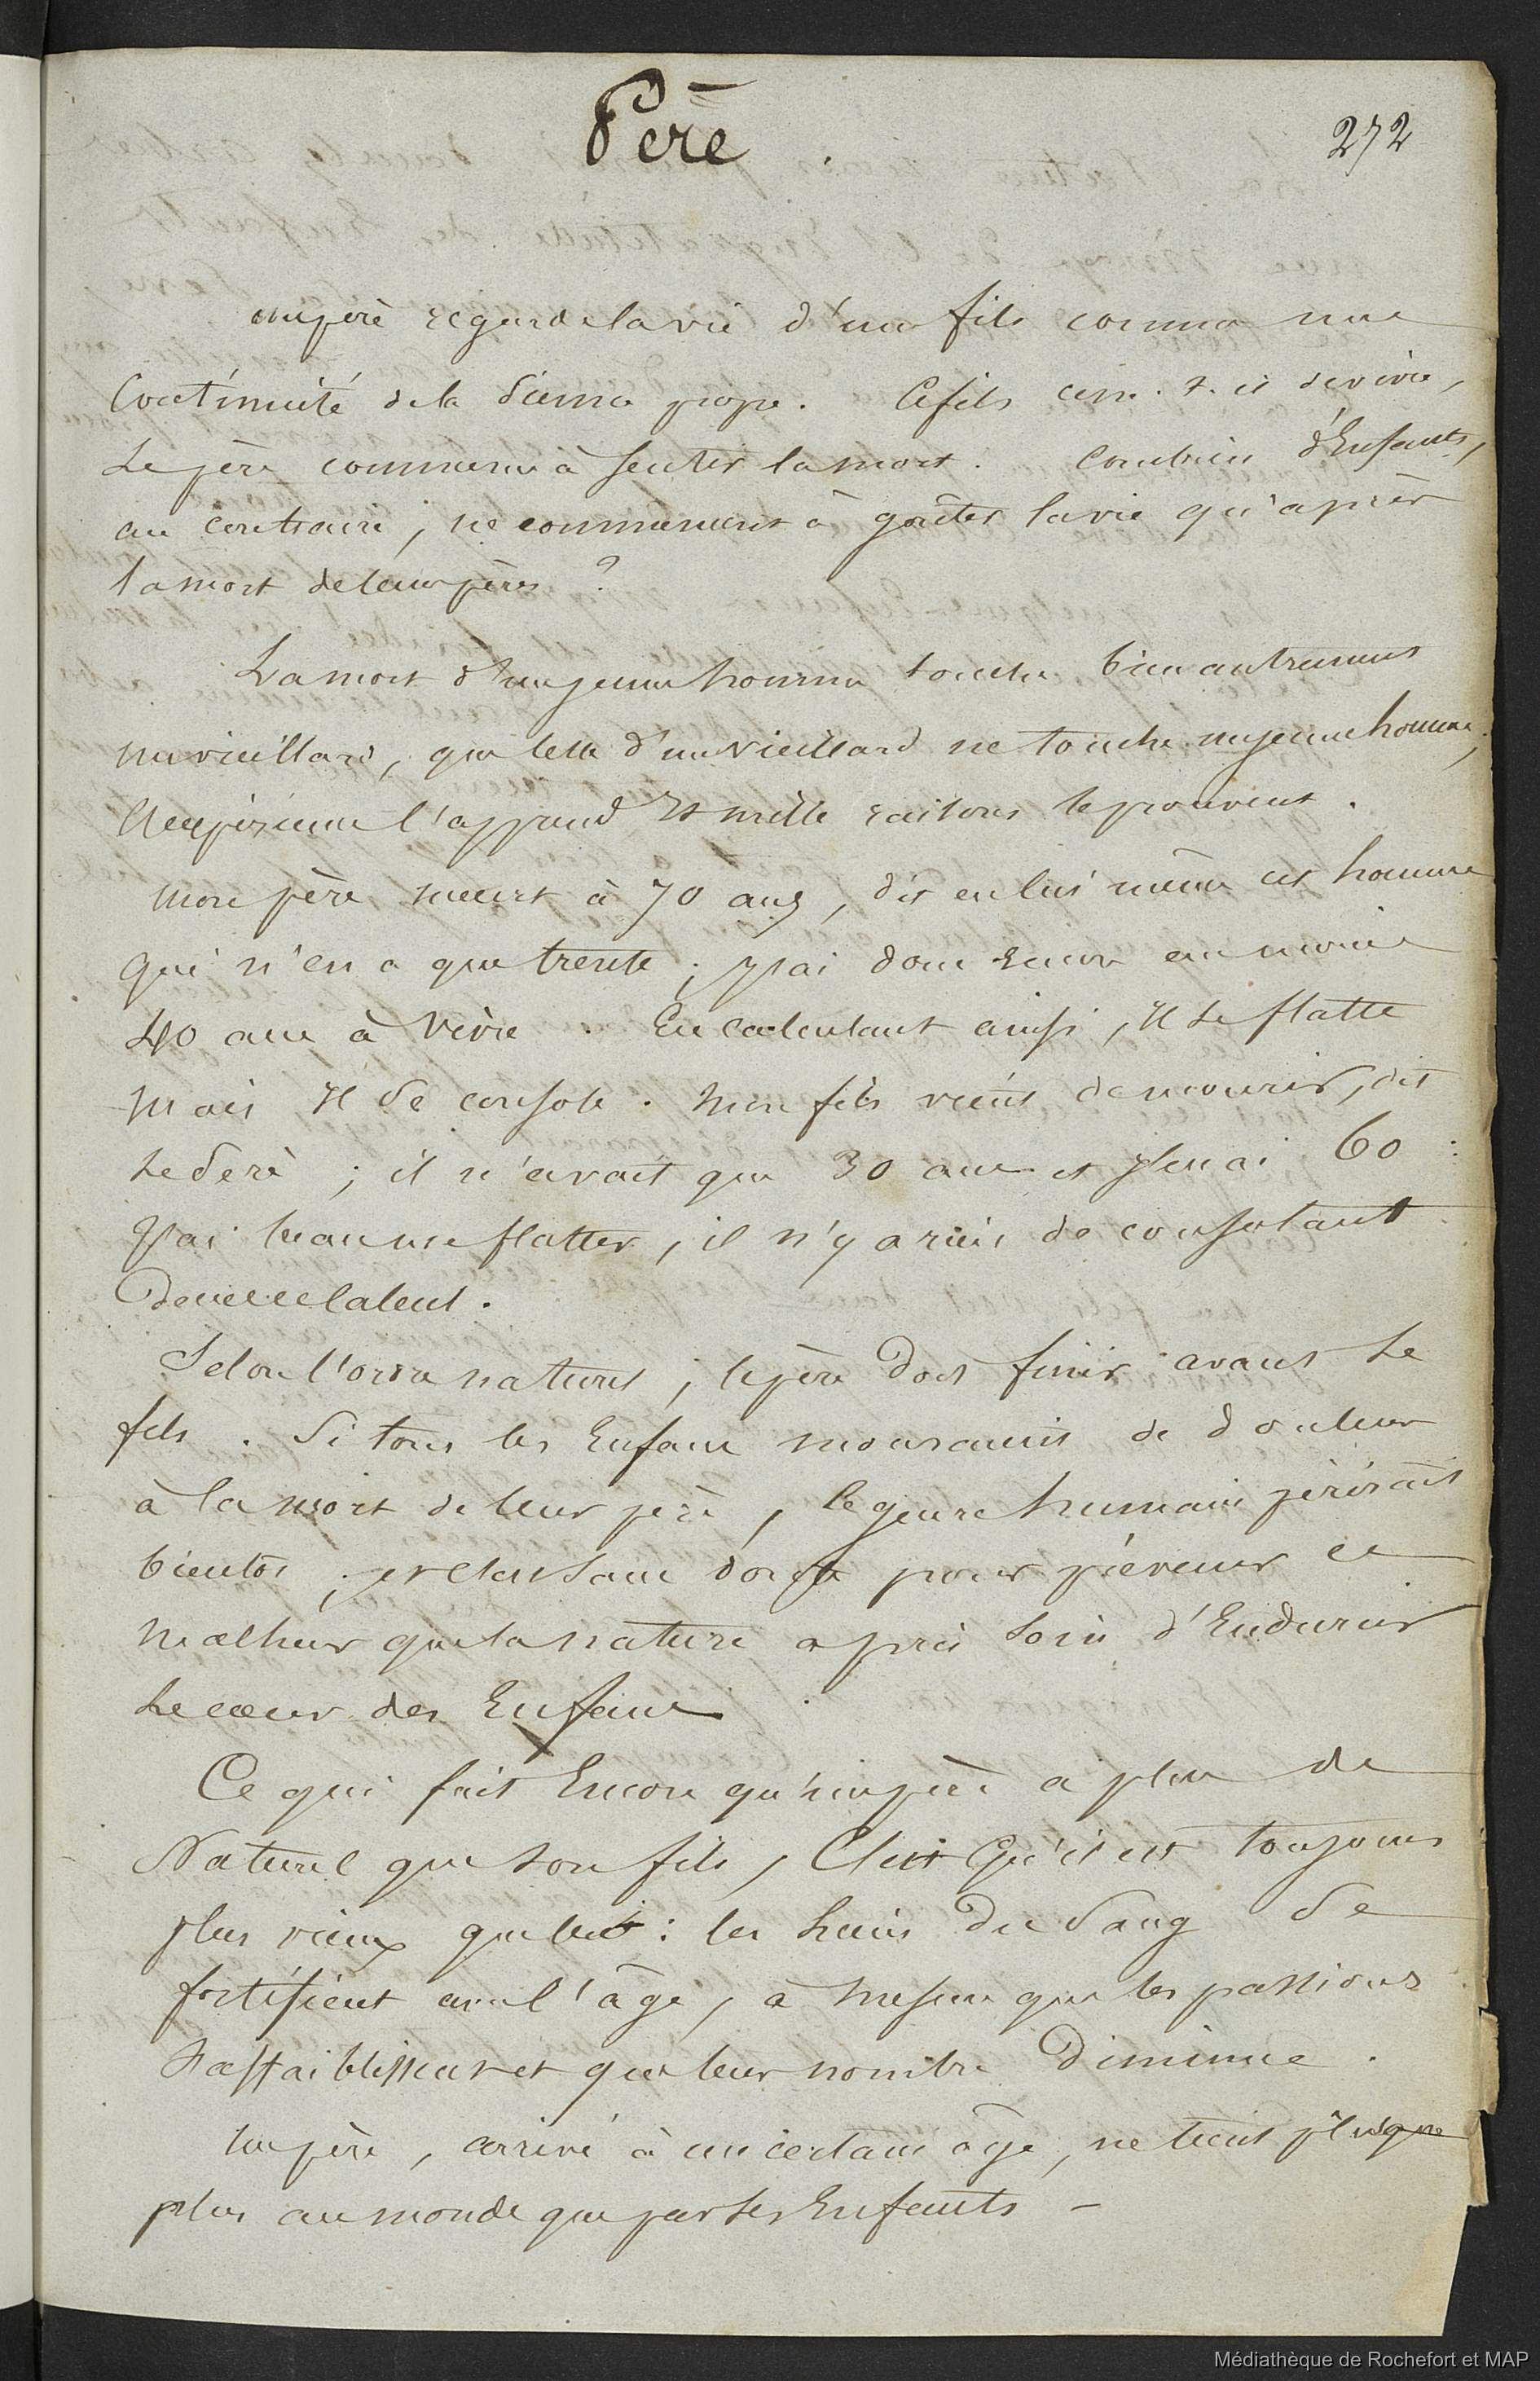 Père .
272
un père regarde la vie d'un fils comme une
Continuité de la Sienne propre. Ce fils cesse-t-il de vivre,
Le père commence à sentir la mort. Combien d'Enfants,
au contraire, ne commencent à goûter la vie qu'après
la mort de leurs pères ?
La mort d'un jeune homme touche bien autrement
un vieillard, que celle d'un vieillard ne touche un jeune homme,
l'expérience l'apprend Et mille raisons le prouvent.
Mon père meurt à 70 ans, dit en lui même cet homme
qui n'en a que trente ; J'ai donc Encore au moins
40 ans à vivre. En calculant ainsi, Il se flatte
Mais Il Se console. Mon fils vient de mourir, dit
Le Père ; il n'avait que 30 ans et J'en ai 60 :
J'ai beau me flatter, il n'y a rien de consolant
Dans ce calcul.
Selon l'ordre naturel, le père doit finir avant Le
fils. Si tous les Enfans mouraient de douleur
à la mort de leur père, le genre humain périrait
bientôt ; et c'est sans doute pour prévenir ce
Malheur que la nature a pris soin d'Endurcir
Le cœur des Enfans.
Ce qui fait Encore qu'un père a plus de
Naturel que son fils, C'est Qu'il est toujours
plus vieux que lui : les liens Du Sang Se
fortifient avec l'âge, à mesure que les passions
S'affaiblissent et que leur nombre Diminue.
Un père, arrivé à un certain âge, ne tient plus que
plus au monde que par ses Enfants -
Médiathèque de Rochefort et MAP